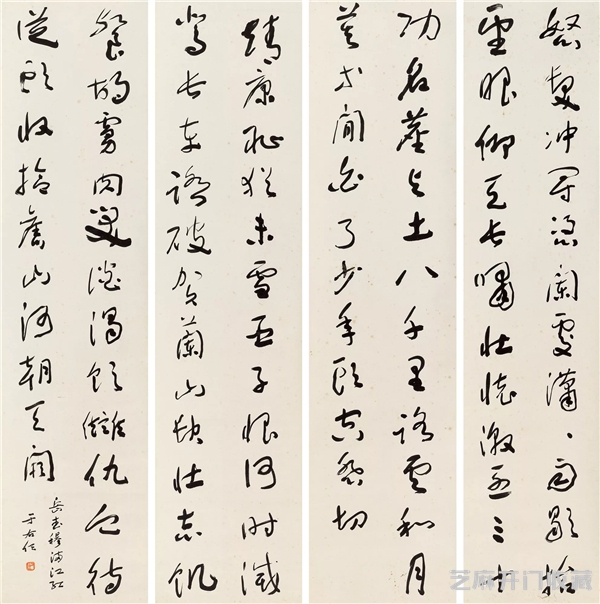 怒髮冲冠憑闌處瀟、雨歇抬
望眼仰天長嘯壯懷激烈三十
功名塵與土八千里路雲和月
莫等閒白了少年頭空悲切
靖康恥猶未雪臣子恨何時滅
駕長車踏破賀蘭山缺壯志飢
餐胡虜肉笑談渴飲讎仇血待
從頭收拾舊山河朝天闕
岳武穆滿江紅
于右任
芝麻开门收藏